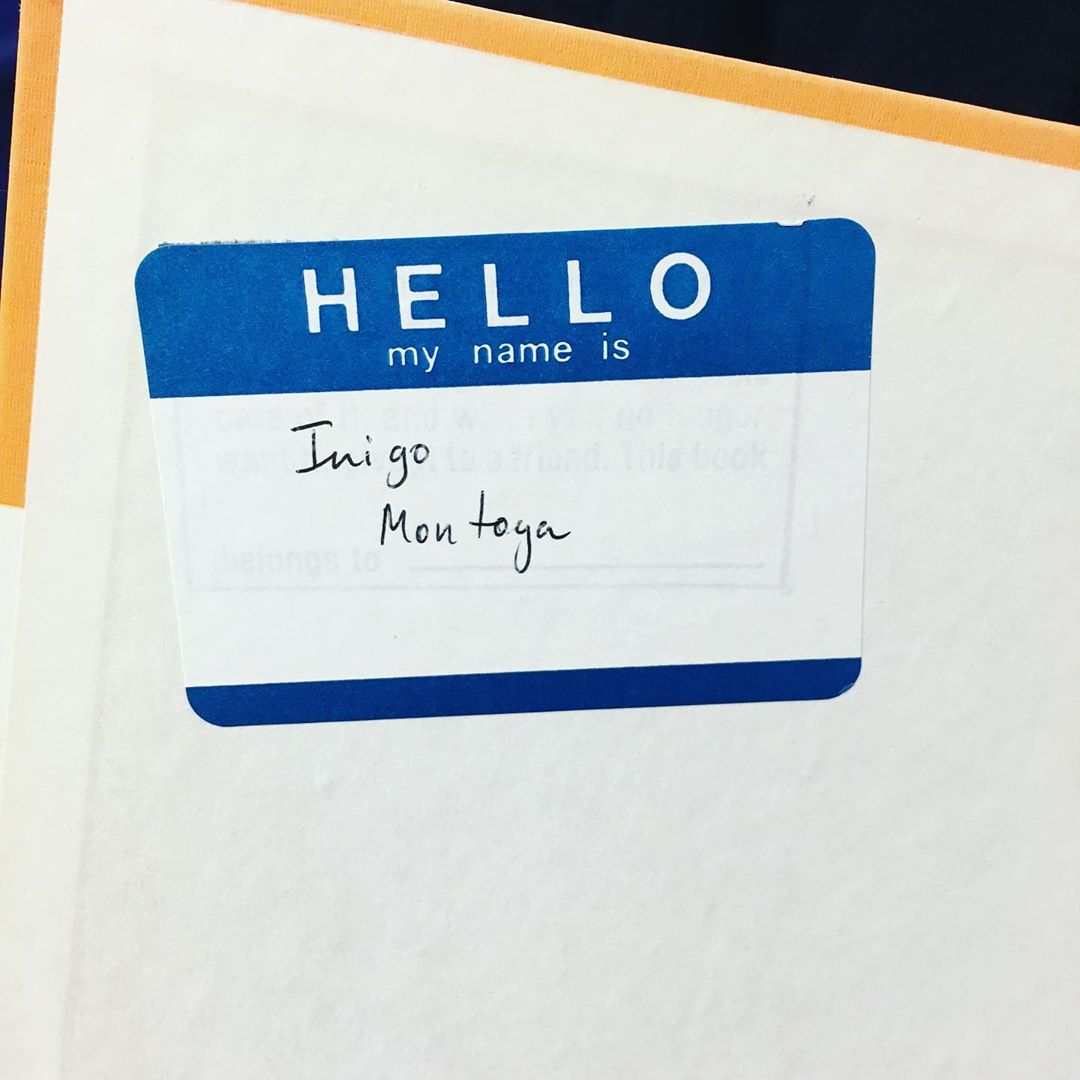 HELLO
my name is
Inigo
Montoya
care of it, and when you no longer
want to a friend. This book
belongs to